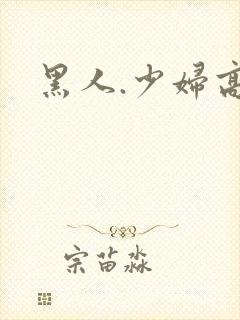 黑人.少婦高
宗苗淼